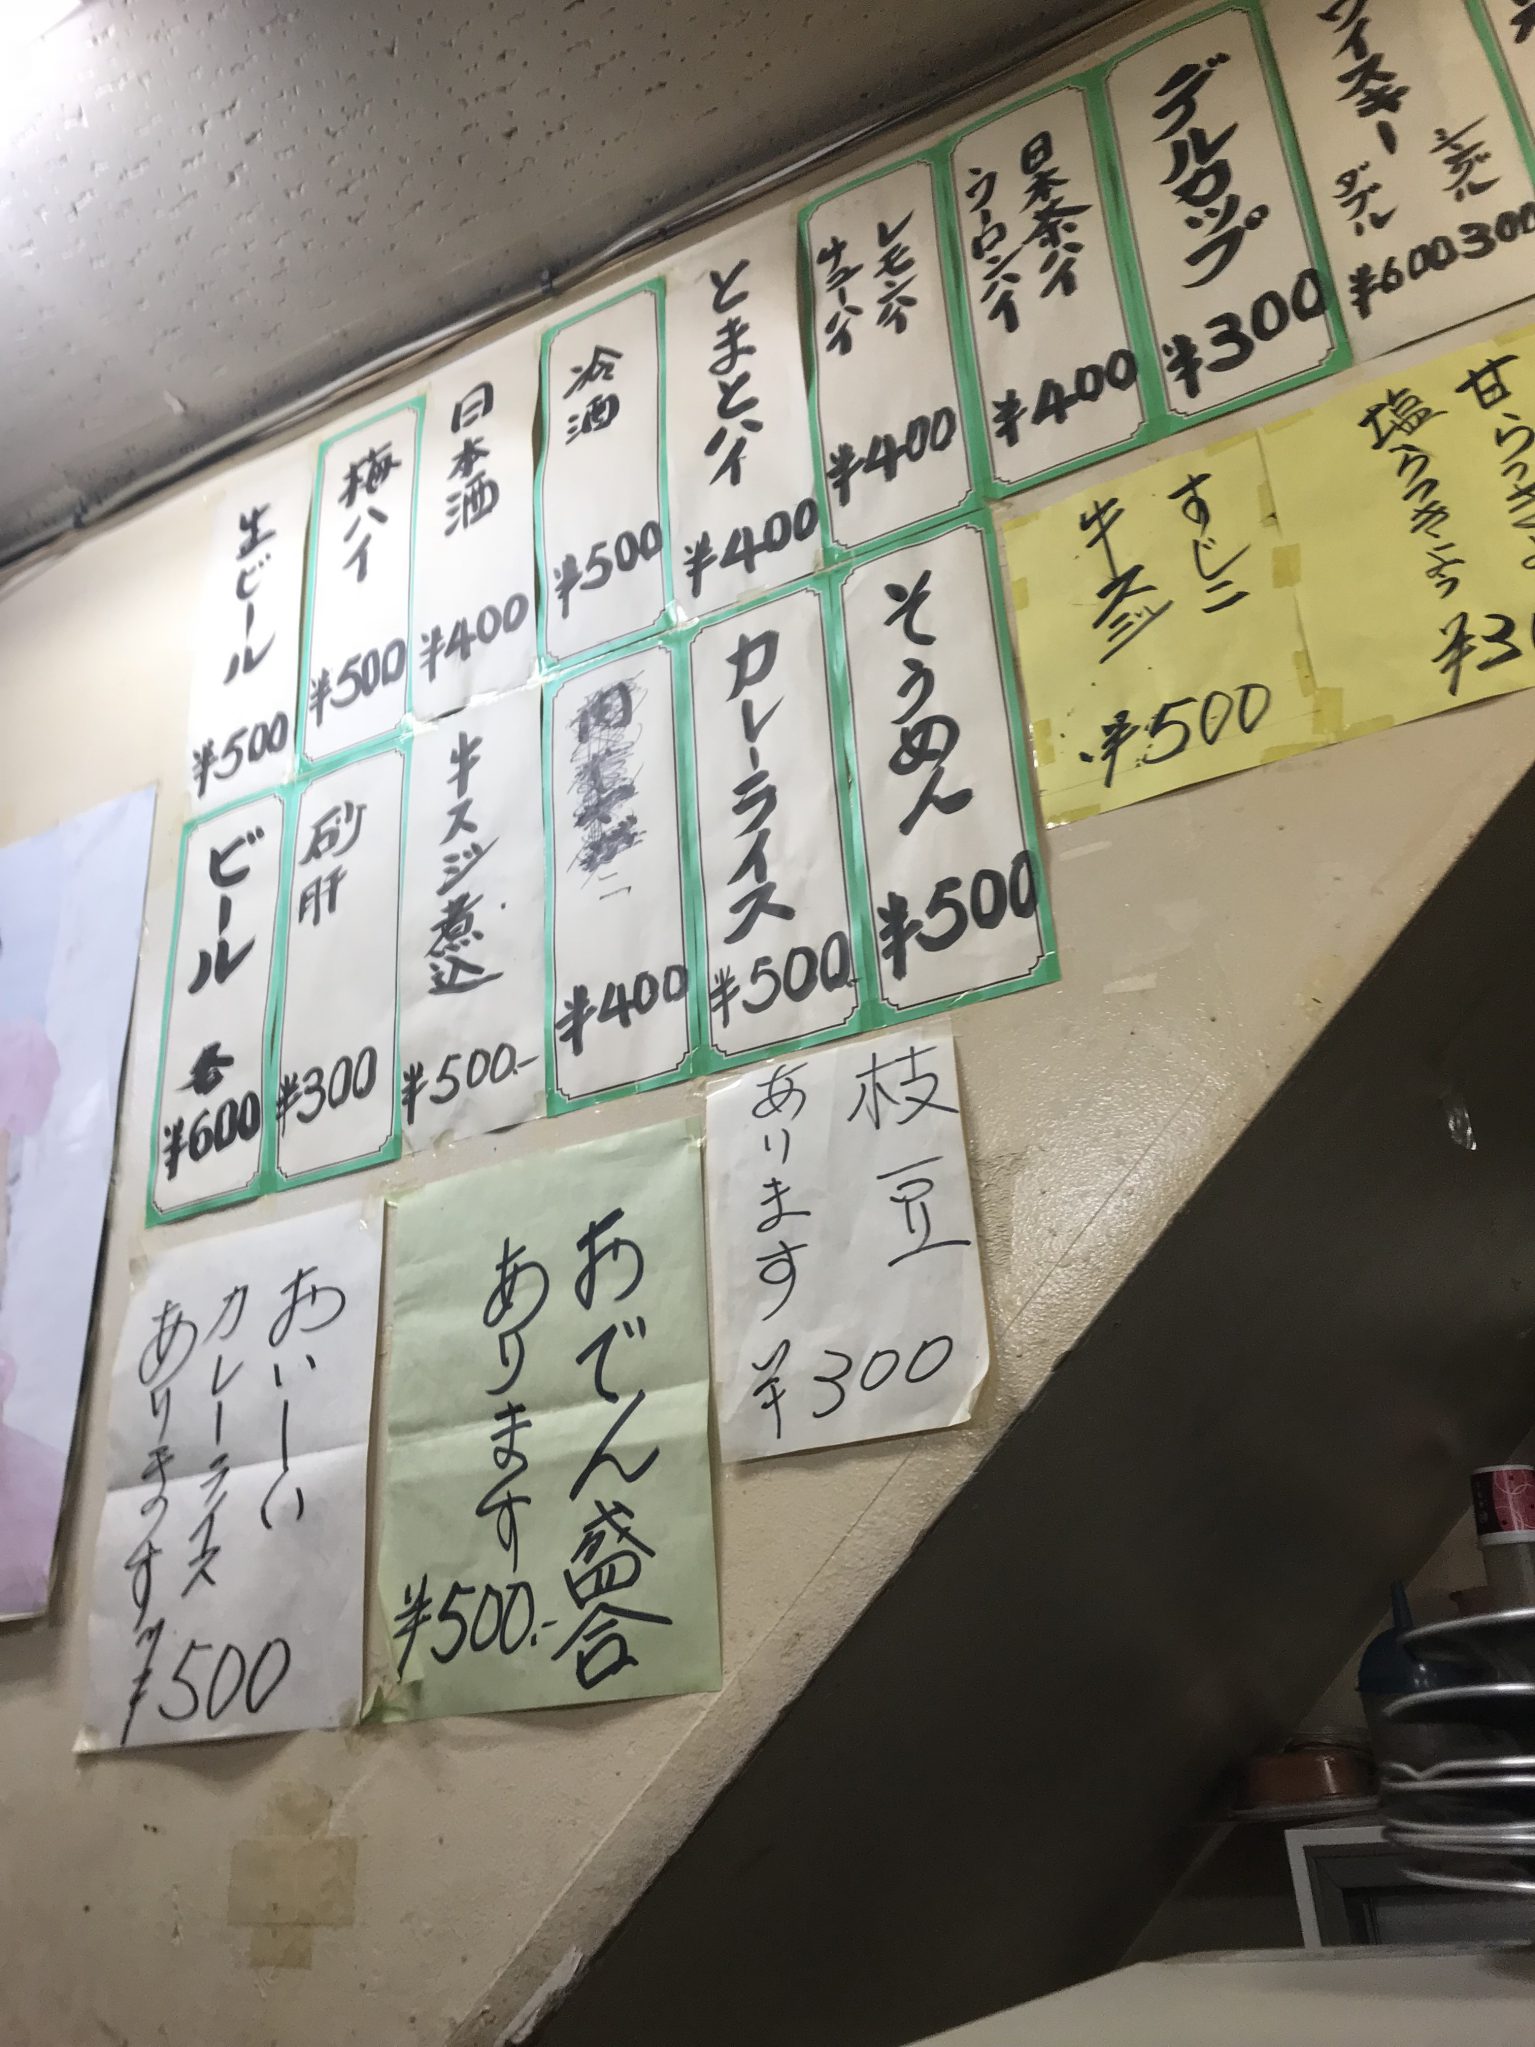 ウイスキー
シングル
ダブル
¥600 300
デルカップ
¥300
日本茶ハイ
ウーロンハイ
¥400
レモンハイ
チューハイ
¥400
とまとハイ
¥400
冷酒
¥500
日本酒
¥400
梅ハイ
¥500
生ビール
¥500
甘らっきょ
塩らっきょう
¥30
すじこ
牛スジ
¥500
そうめん
¥500
カレーライス
¥500
¥400
牛スジ煮込
¥500.-
砂肝
¥300
ビール
各
¥600
枝豆
あります
¥300
おでん盛合
あります
¥500.-
おいーしい
カレーライス
あります
¥500